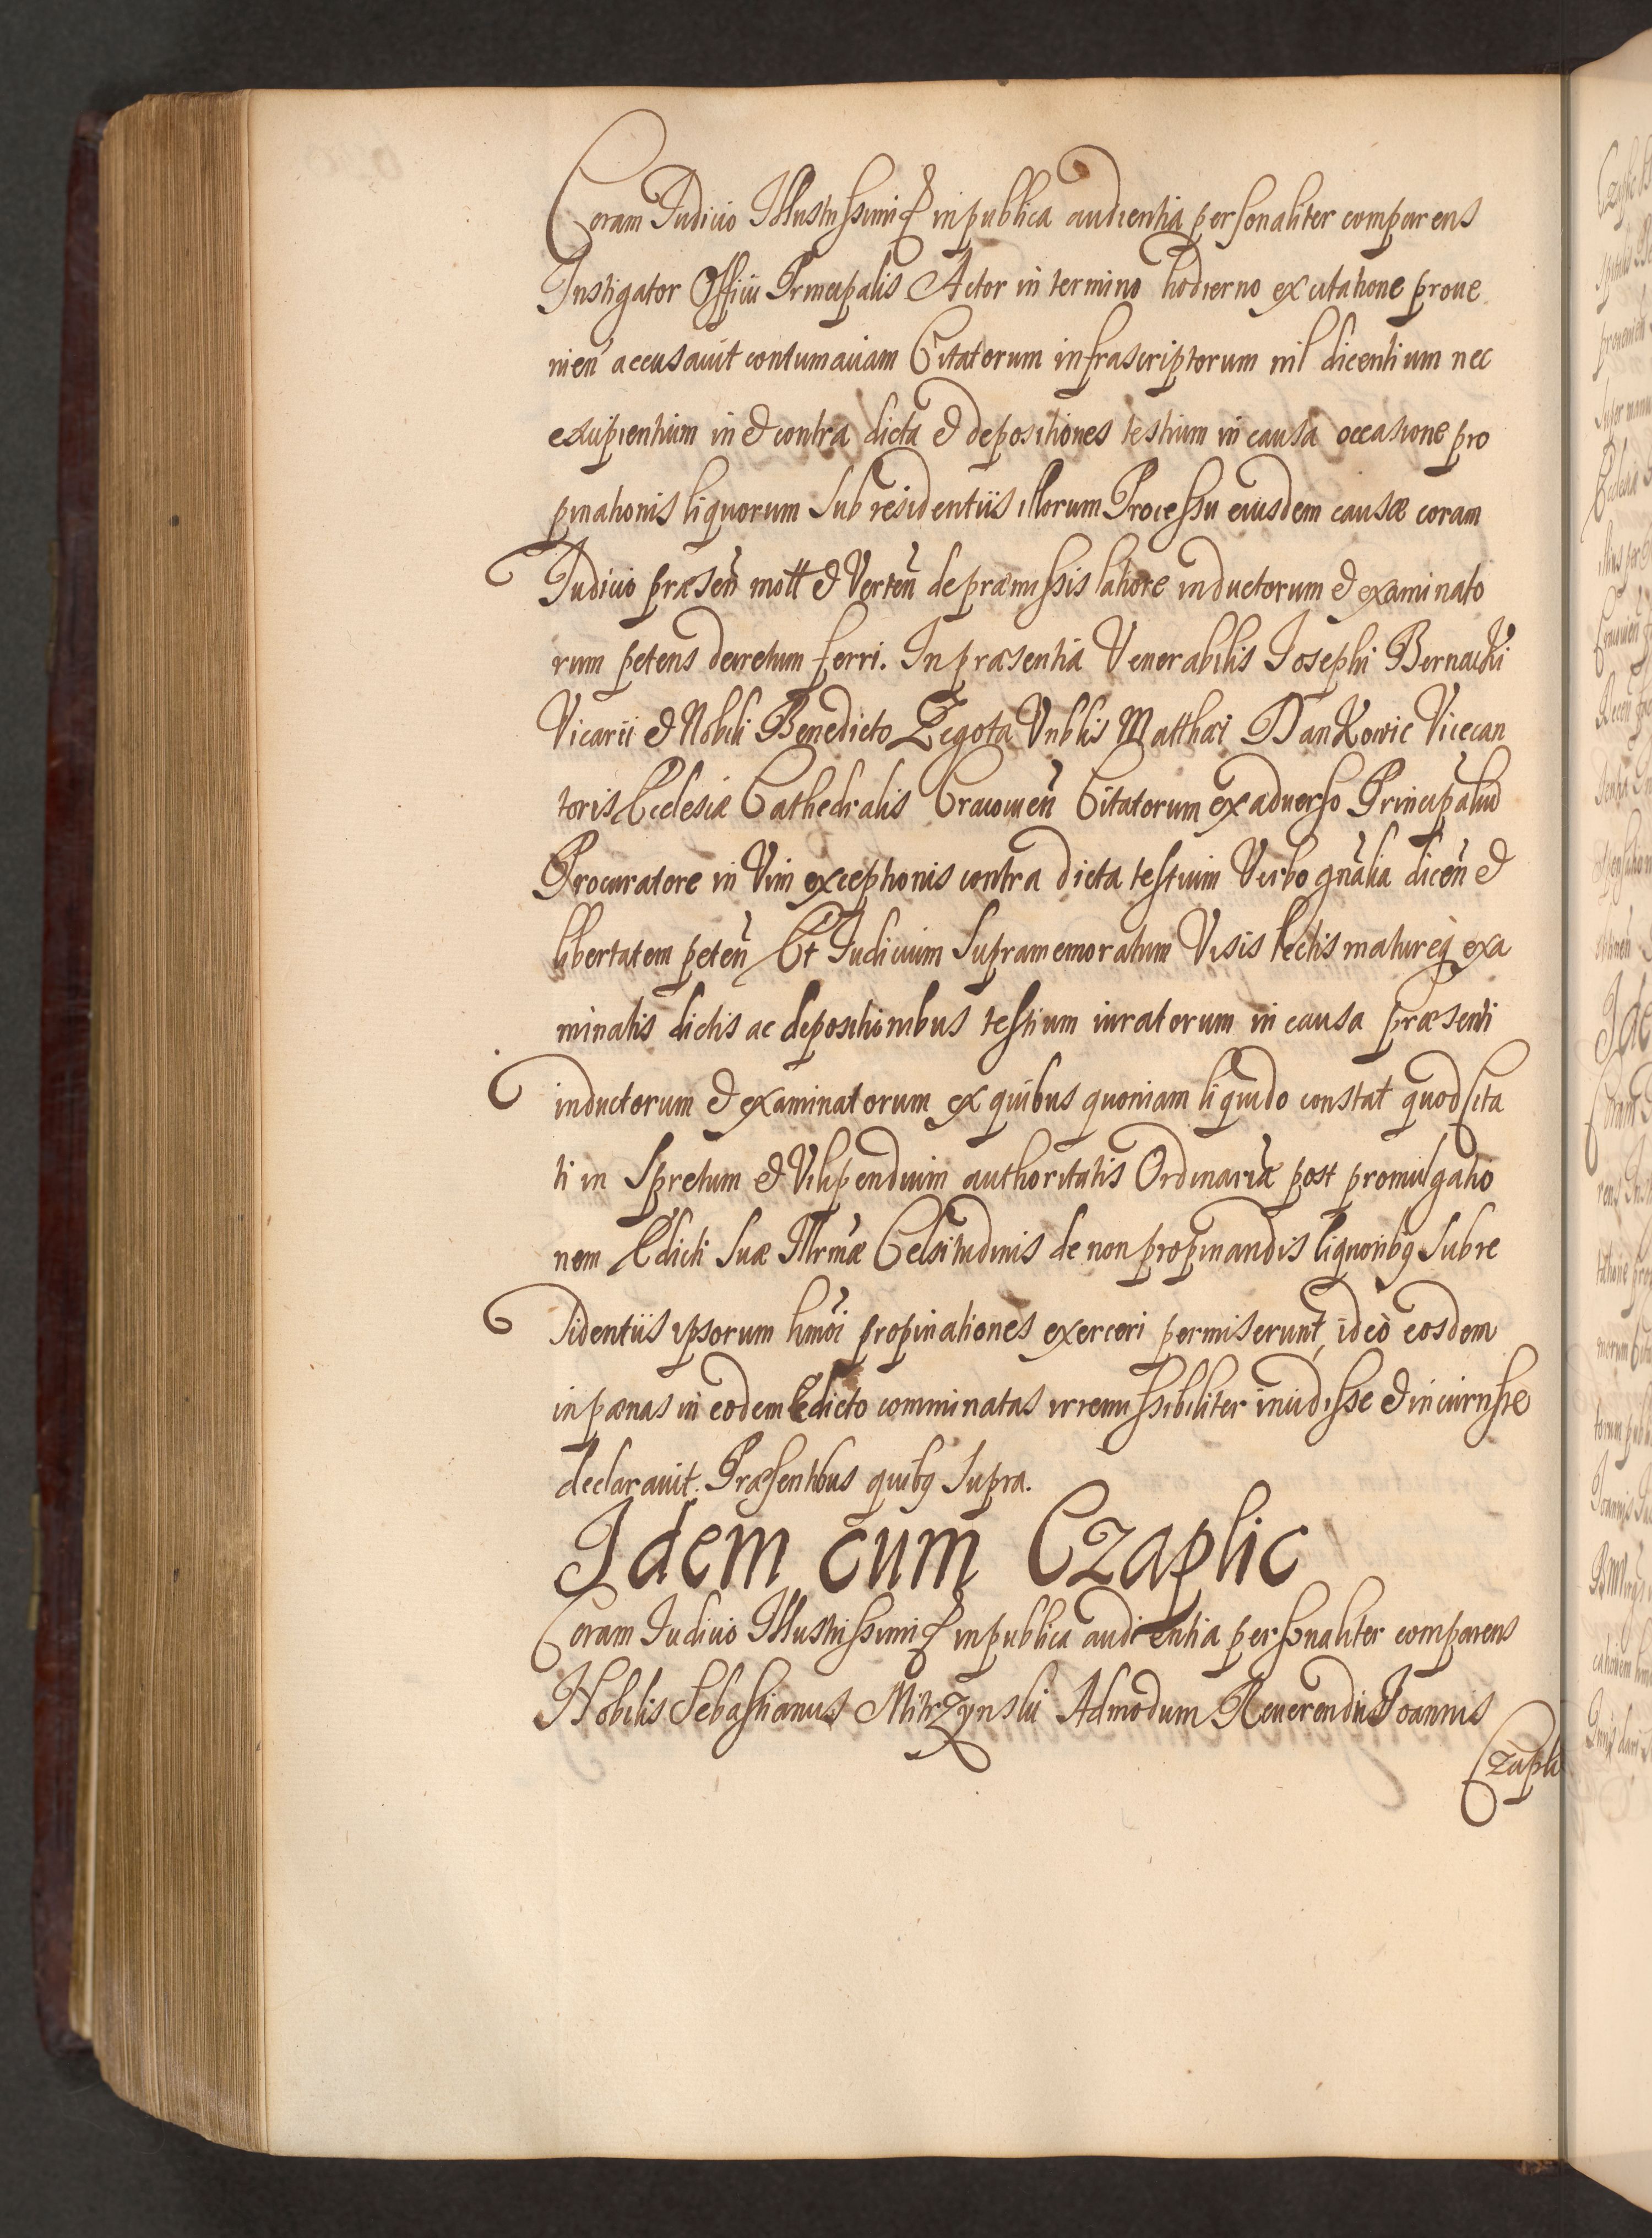 Coram Iudicio Illustrissimi & in publica audientia personaliter comparens
Instigator Officii Principalis Actor in termino hodierno ex citatione prove
nien̄ accusavit contumaciam Citatorum infrascriptorum nil dicentium nec
excipientium in & contra dicta & depositiones testium in causa occasione pro
pinationis liquorum sub residentiis illorum Processu eiusdem causæ coram
Iudicio præsen̄ mott & Verten̄ de præmissis latiore inductorum & examinato
rum petens decretum ferri. In præsentia Venerabilis Iosephi Biernacki
Vicarii & Nobili Benedicto Zegota Vnblis Matthæi Dankowic Vicecan
toris Ecclesiæ Cathedralis Cracovien̄ Citatorum ex adverso Principaliū
Procuratore in Vim exceptionis contra dicta testium Verbo gn̄alia dicen̄ &
libertatem peten̄ Et Iudicium supramemoratum Visis lectis matureq exa
minatis dictis ac depositionibus testium iuratorum in causa præsenti
inductorum & examinatorum ex quibus quoniam liquido constat quod Cita
ti in spretum & Vilipendium authoritatis Ordinariæ post promulgatio
nem Edicti suæ Illrm̄æ Celsitudinis de non propinandis liquoribq sub re
sidentiis ipsorum hmōi propinationes exerceri permiserunt, ideò eosdem
in pænas in eodem Edicto comminatas irremissibiliter incidisse & incurrisse
declaravit. Præsentibus quibq supra.
Idem cum Czaplic
Coram Iudicio Illustrissimi & in publica audientia personaliter comparens
Nobilis Sebastianus Mitrzynski Admodum Reverendi Ioannis
Czapli